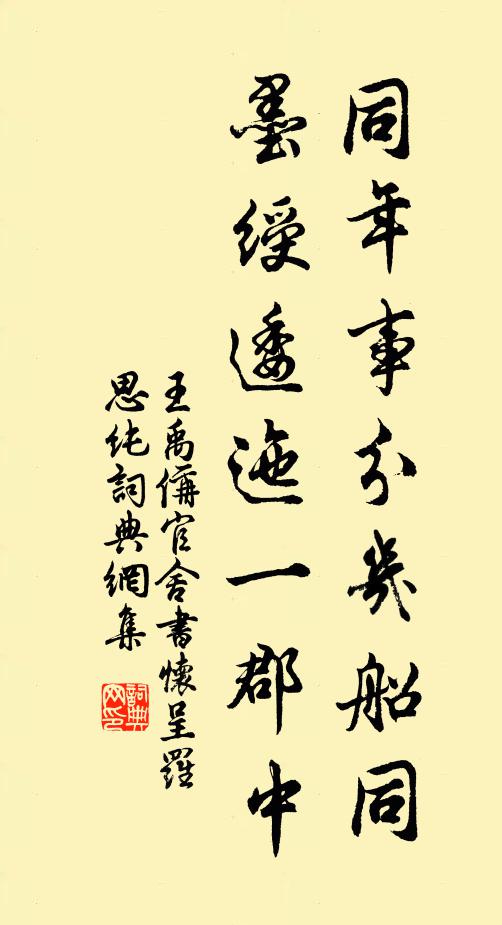 同年事分幾船同
墨綬逶迤一郡中
王禹偁官舍書懷呈羅
思純詞典網集
詞典網印